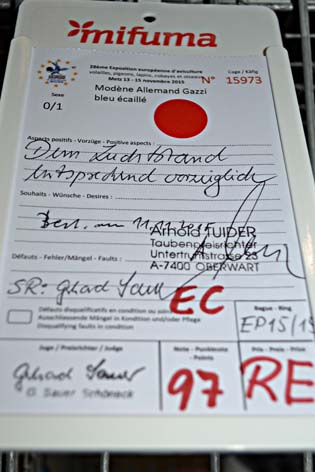 mifuma
28ème Exposition européenne d'aviculture
volailles, pigeons, lapins, cobayes et oiseaux
Metz 13 - 15 novembre 2015
Cage / Käfig
N° 15973
Sexe
0/1
Modène Allemand Gazzi
bleu écaillé
Aspects positifs - Vorzüge - Positive aspects :
Dem Zuchtstand
entsprechend vorzüglich
Souhaits - Wünsche - Desires :
Arnold TUIDER
Taubenpreisrichter
Untertrumstraße 23
A-7400 OBERWART
Défauts - Fehler/Mängel - Faults :
SR: Gerhard Sauer
EC
Défauts disqualificatifs en condition ou soins
Ausschliessende Mängel in Kondition und/oder Pflege
Disqualifying faults in condition
Bague - Ring
EP15/15
Juge / Preisrichter / Judge
Gerhard Sauer
G. Sauer
Note - Punktnote - Points
97
Prix - Preis - Prize
RE